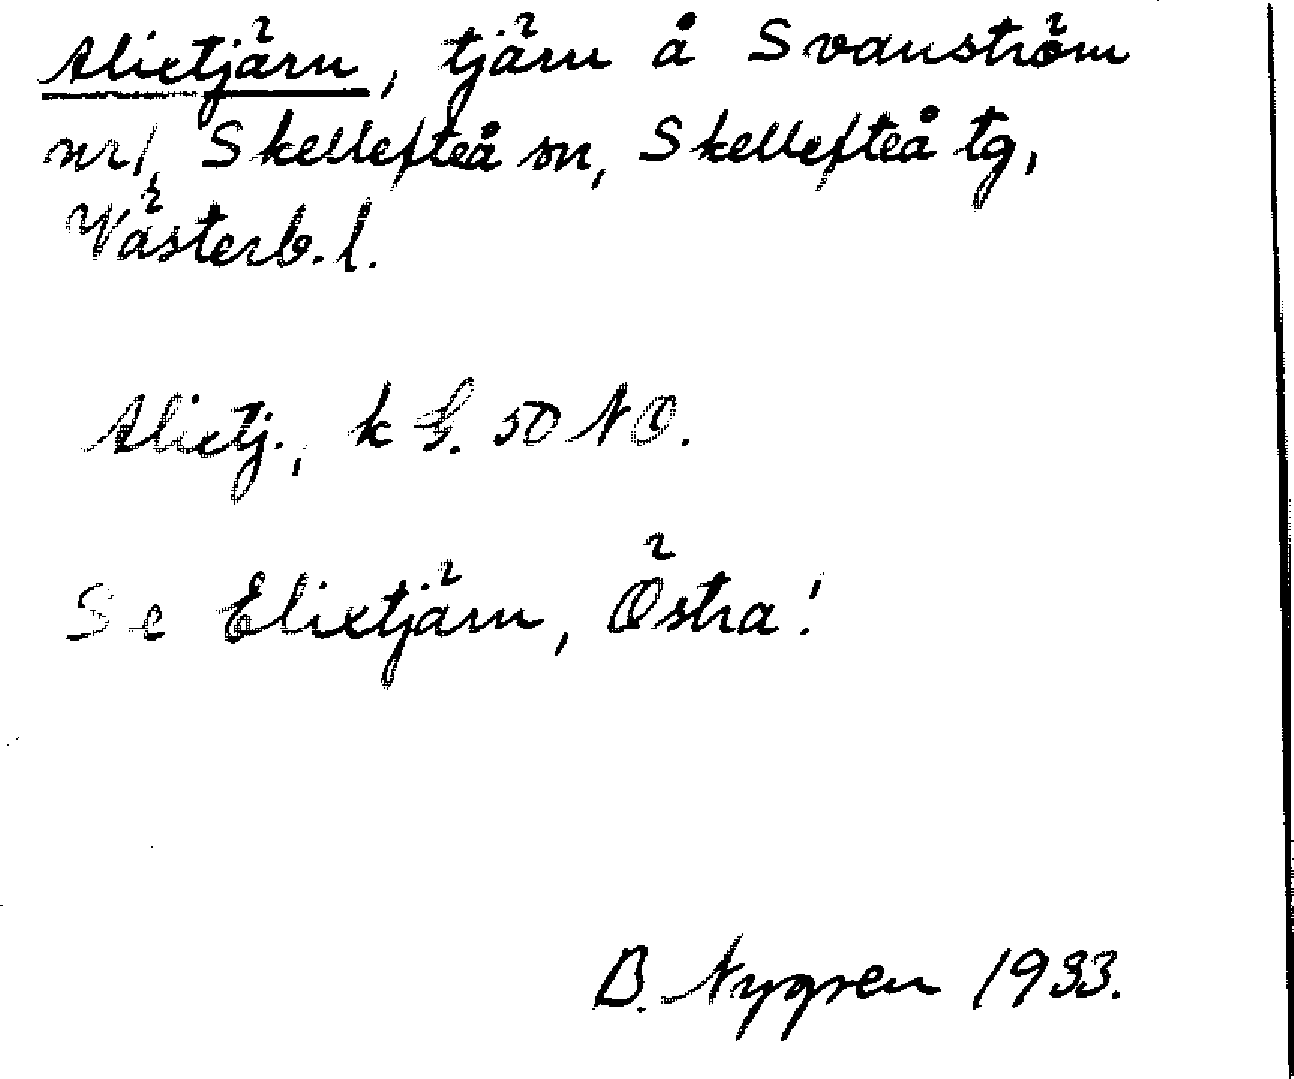 Alixtjärn, tjärn å Svanström
nr 1, Skellefteå sn, Skellefteå tg,
Västerb. l.
Alixtj., k G. 50 NO.
Se Elixtjärn, Östra!
B. Nygren 1933.